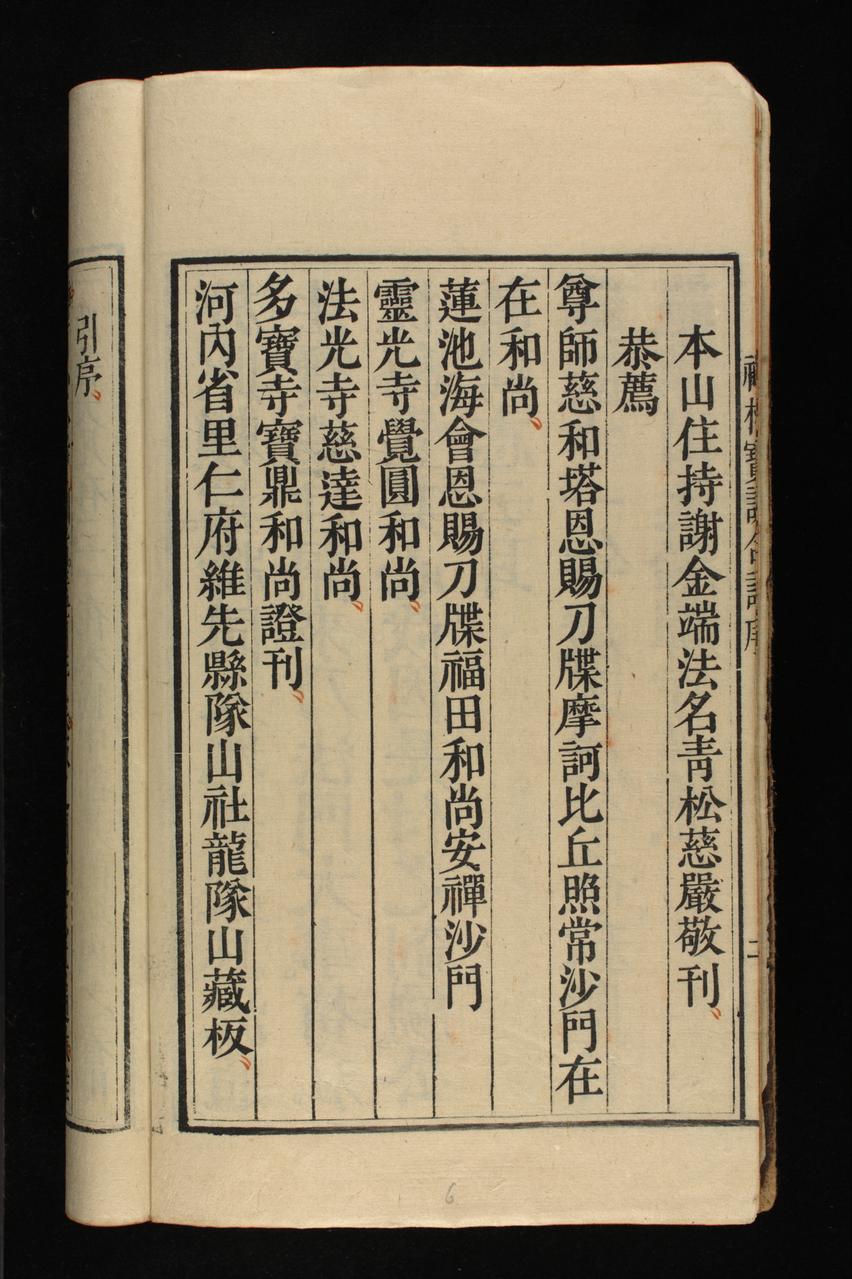 本山住持謝金端法名青松慈嚴敬刊、
恭薦
尊師慈和塔恩賜刀牒摩訶比丘照常沙門在
在和尚、
蓮池海會恩賜刀牒福田和尚安禪沙門
靈光寺覺圓和尚、
法光寺慈達和尚、
多寶寺寶鼎和尚證刊、
河內省里仁府維先縣隊山社龍隊山藏板、
二
引序、
6